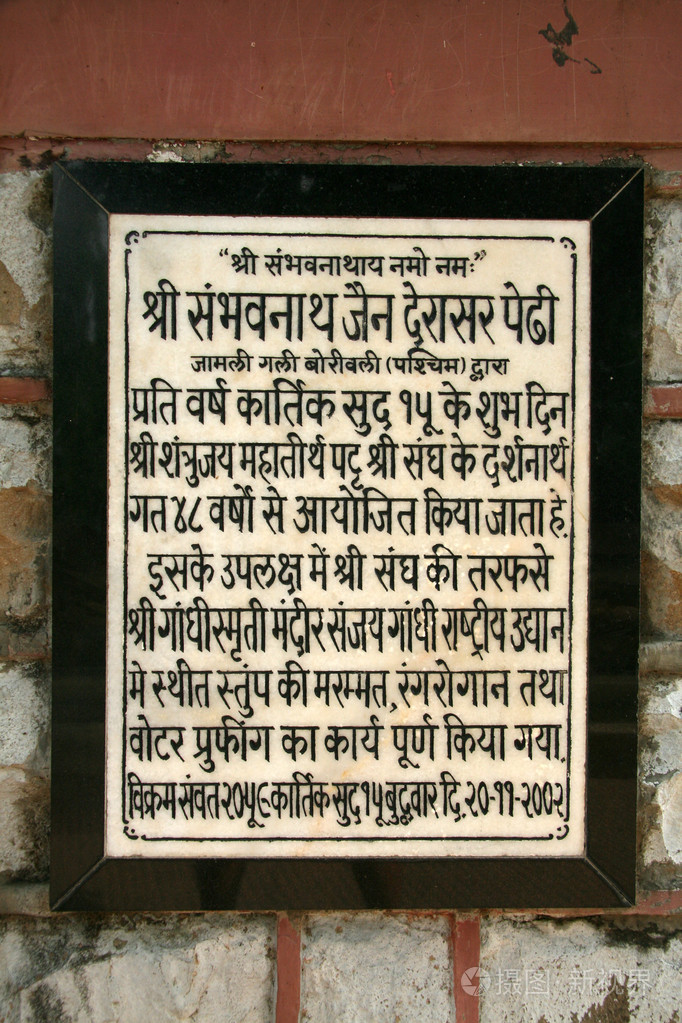 “श्री संभवनाथाय नमो नमः”
श्री संभवनाथ जैन देरासर पेढी
जामली गली बोरीवली (पश्चिम) द्वारा
प्रति वर्ष कार्तिक सुद १५ के शुभ दिन
श्री शंत्रुजय महातीर्थ पट्ट श्री संघ के दर्शनार्थ
गत ४८ वर्षो से आयोजित किया जाता है.
इसके उपलक्ष में श्री संघ की तरफसे
श्री गांधीस्मृती मंदीर संजय गांधी राष्ट्रीय उद्यान
मे स्थीत स्तुंप की मरम्मत, रंगरोगान तथा
वोटर प्रुफींग का कार्य पूर्ण किया गया.
विक्रम संवत २०५९ कार्तिक सुद १५ बुद्धवार दि. २०-११-२००२
摄图 新视界